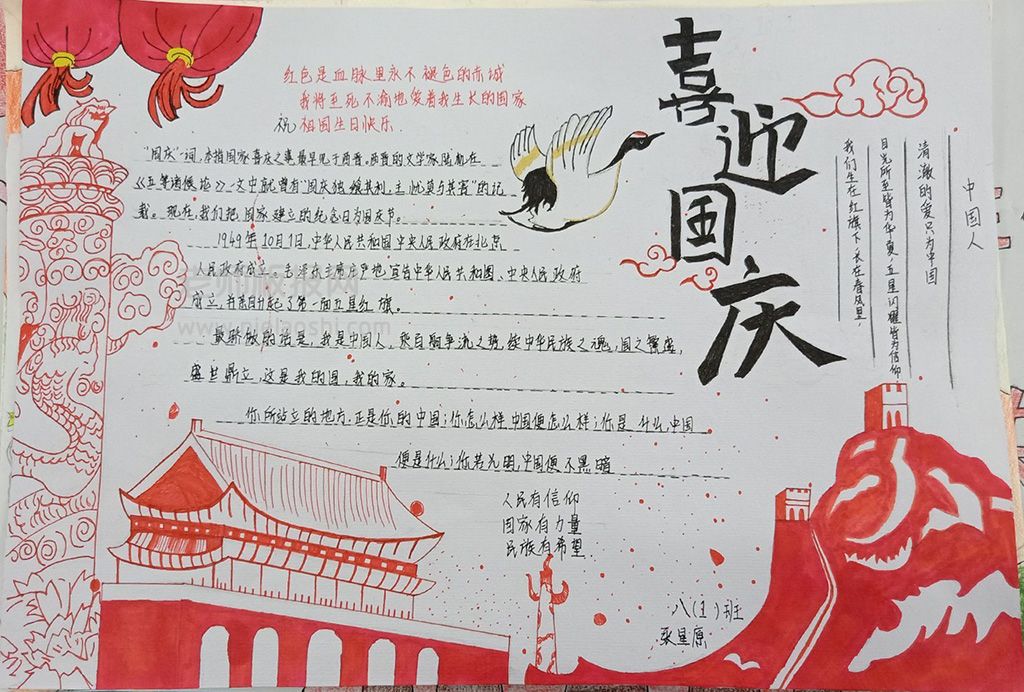 喜迎国庆
红色是血脉里永不褪色的赤城
我将至死不渝地爱着我生长的国家
祝 祖国生日快乐.
"国庆"一词,本指国家喜庆之事最早见于西晋,西晋的文学家陆机在
《五等诸侯论》一文中就曾有"国庆独飨其利,主忧莫与其害"的记
载。现在,我们把国家建立的纪念日为国庆节。
1949年10月1日,中华人民共和国中央人民政府在北京
人民政府成立。毛泽东主席庄严地宣告中华人民共和国、中央人民政府
成立,并亲自升起了第一面五星红旗。
最骄傲的法是,我是中国人。乘百舸争流之势,接中华民族之魂,国之繁盛,
盛世鼎立,这是我的国,我的家。
你所站立的地方,正是你的中国;你怎么样中国便怎么样;你是什么,中国
便是什么;你若光明,中国便不黑暗
人民有信仰
国家有力量
民族有希望.
中国人
清澈的爱只为中国
目光所至皆为华夏,五星闪耀皆为信仰
我们生在红旗下,长在春风里,
八(1)班
张星原
老师板报网